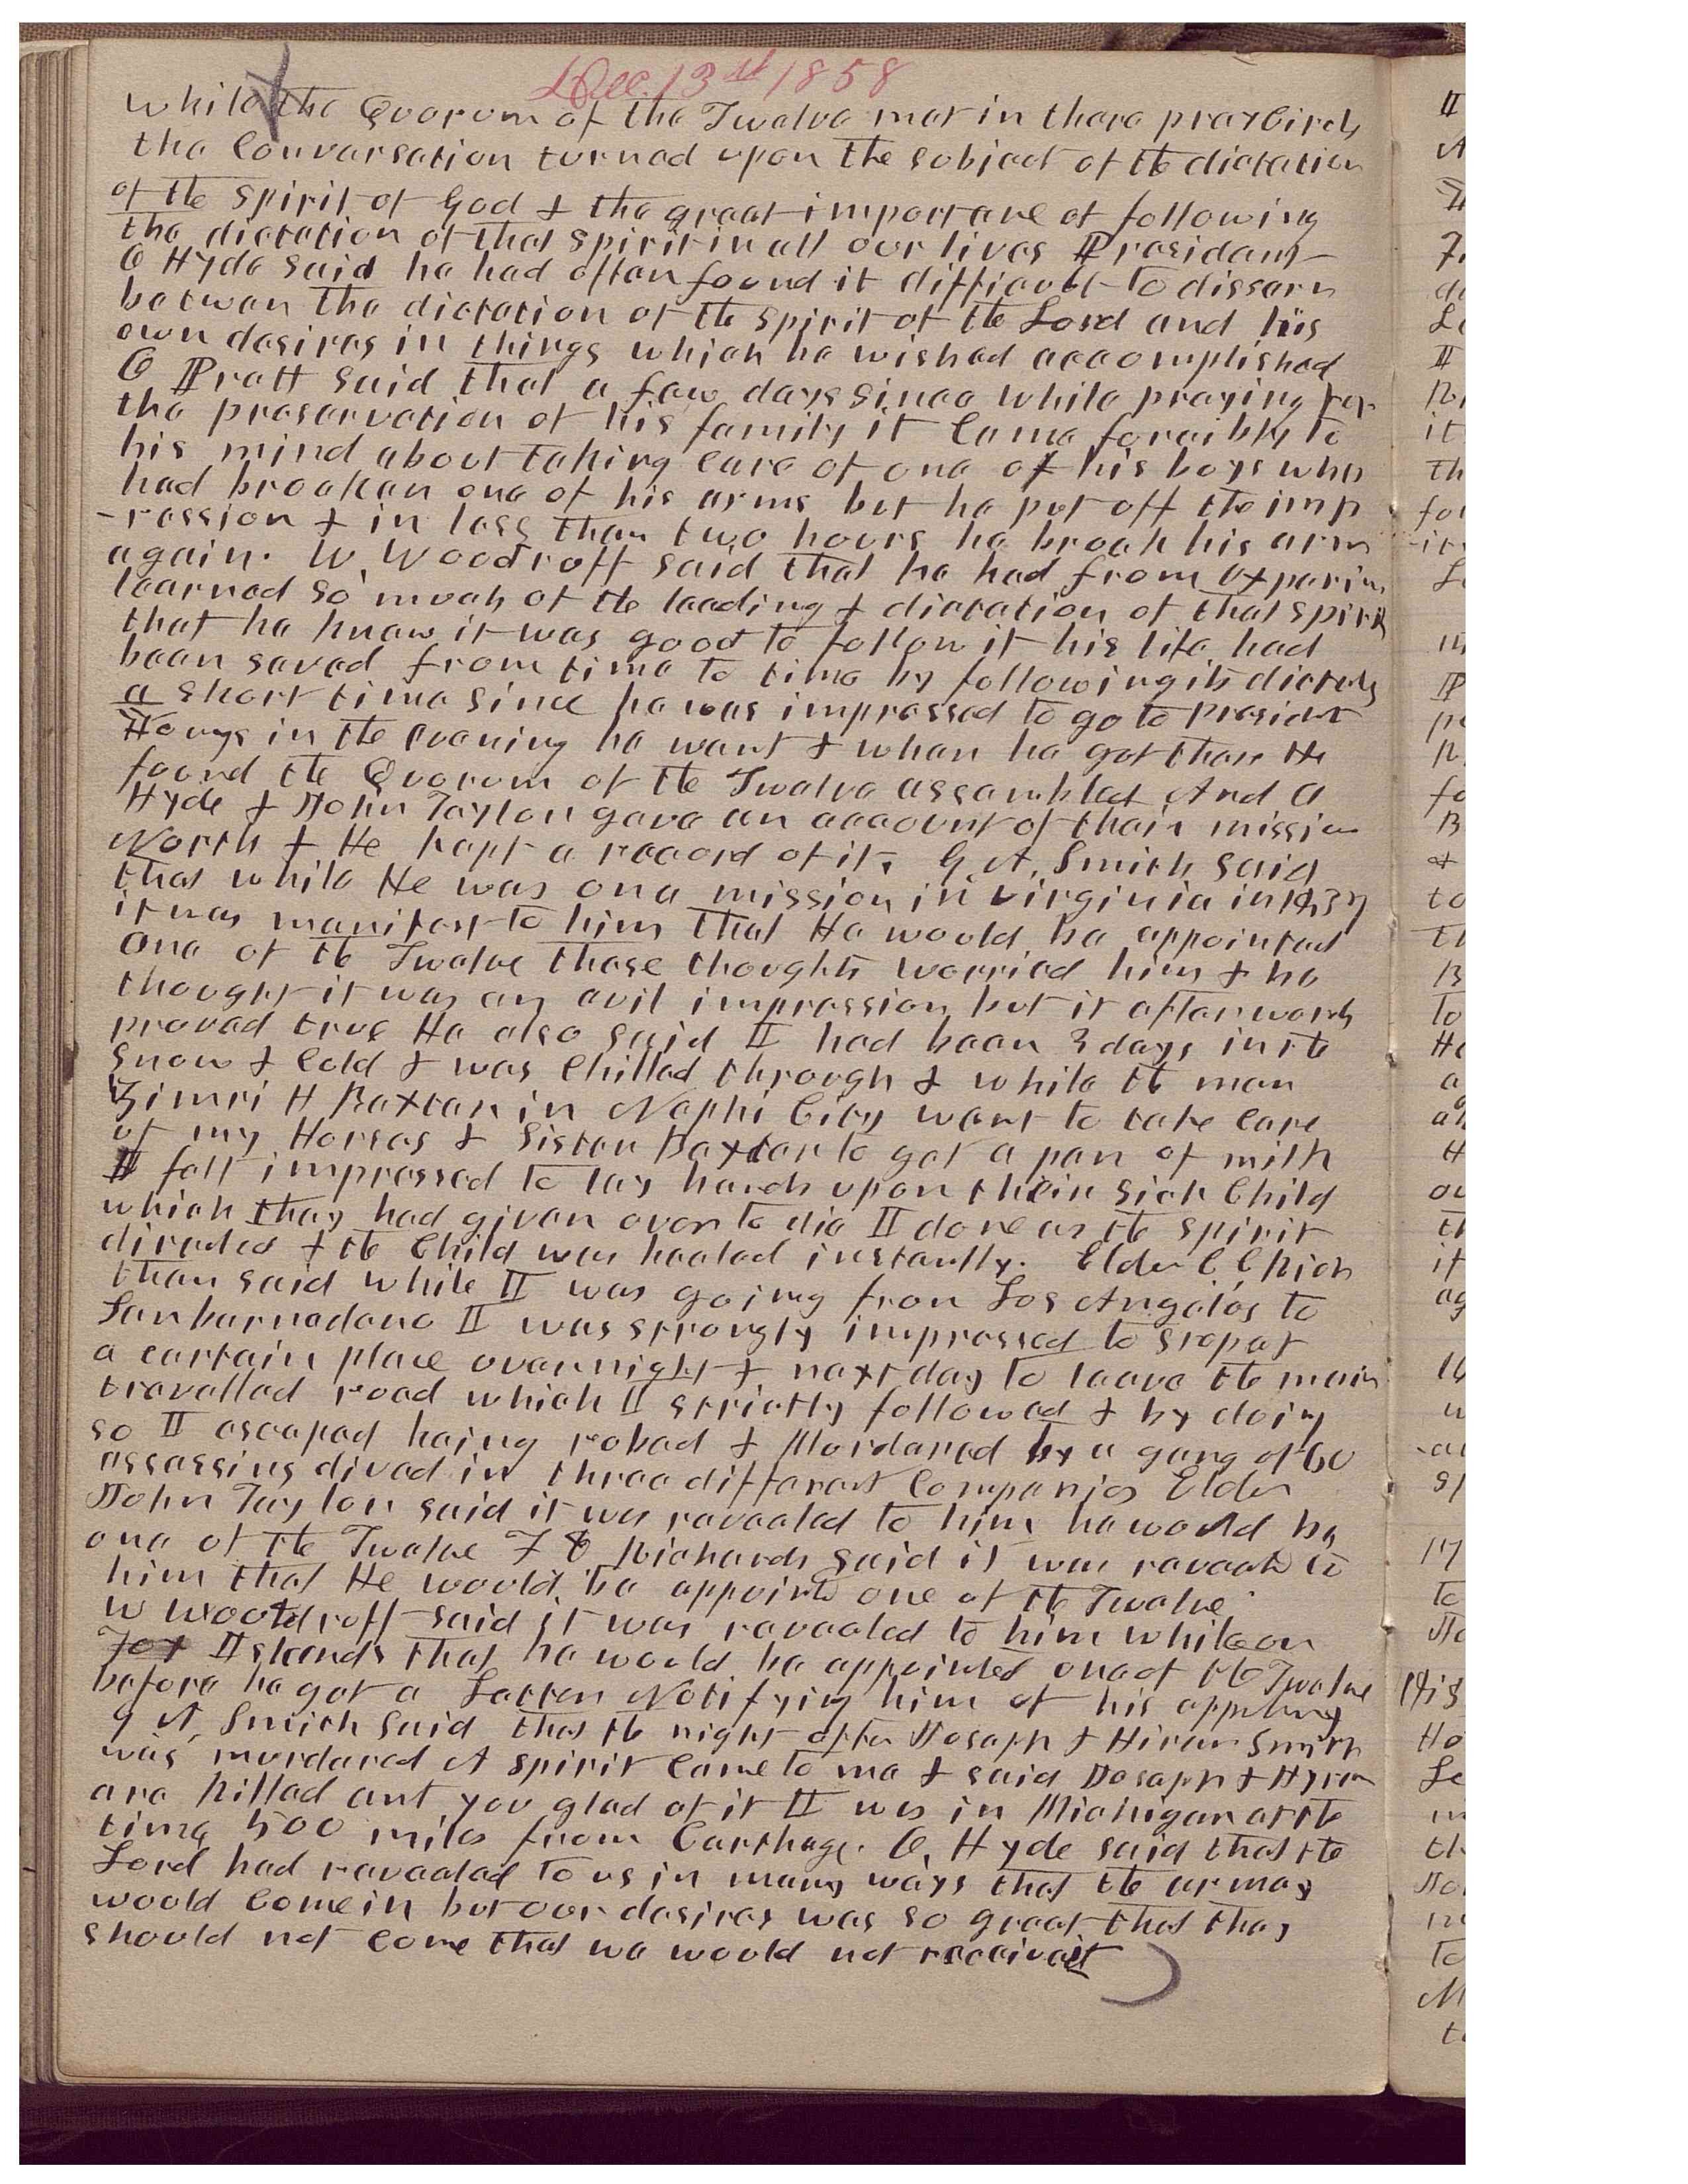 Dec. 13th 1858
while the Quorum of the Twelve met in there pray Circle
the Conversation turned upon the subject of the dictation
of the spirit of God & the great importance of following
the dictation of that spirit in all our lives President
O Hyde said he had often found it difficult to dissern
betwen the dictation of the spirit of the Lord and his
own desires in things which he wished accomplished
O Pratt said that a few days since while praying for
the preservation of his family it Came forcibly to
his mind about taking care of one of his boys who
had broaken one of his arms but he put off the imp
-ression & in less than two hours he broak his arm
again. W. Woodruff said that he had from Experien
learned so much of the leading & dictation of that spirit
that he knew it was good to follow it his life had
been saved from time to time by following its dictates
a short time since he was impressed to go to President
Youngs in the evening he went & when he got thare He
found the Quorum of the Twelve assembled And O
Hyde & John Taylor gave an account of their mission
North & He kept a record of it. G. A. Smith said
that while He was on a mission in Virginia in 1837
it was manifest to him that He would be appointed
one of the Twelve these thoughts worried him & he
thought it was an evil impression but it afterwords
proved true He also said I had been 3 days in the
snow & Cold & was Chilled through & while the man
Zimri H Baxter in Nephi City went to take care
of my Horses & Sister Baxter to get a pan of milk
I felt impressed to lay hands upon their sick Child
which they had given over to die I done as the spirit
directed & the Child was healed instantly. Elder C C Rich
then said while I was going from Los Angelos to
Sanbarnadeno I was strongly impressed to stop at
a certain place over night & next day to leave the main
travelled road which I strictly followed & by doing
so I escaped being robed & Murdered by a gang of 60
assassins divded in three different Companies Elder
John Taylor said it was revealed to him he would be
one of the Twelve F D Richards said it was reveald to
him that He would be appointd one of the Twelve
W Woodruff said it was revealed to him while on
Fox Islands that he would be appointed one of the Twelve
before he got a Letter Notifying him of his appointmet
G A. Smith said that the night after Joseph & Hiram Smith
was murdered A spirit Came to me & said Joseph & Hyrum
are killed ant you glad of it I was in Michigan at the
time 500 miles from Carthage. O. Hyde said that the
Lord had revealed to us in many ways that the armey
would Come in but our desires was so great that they
should not come that we would not receive it